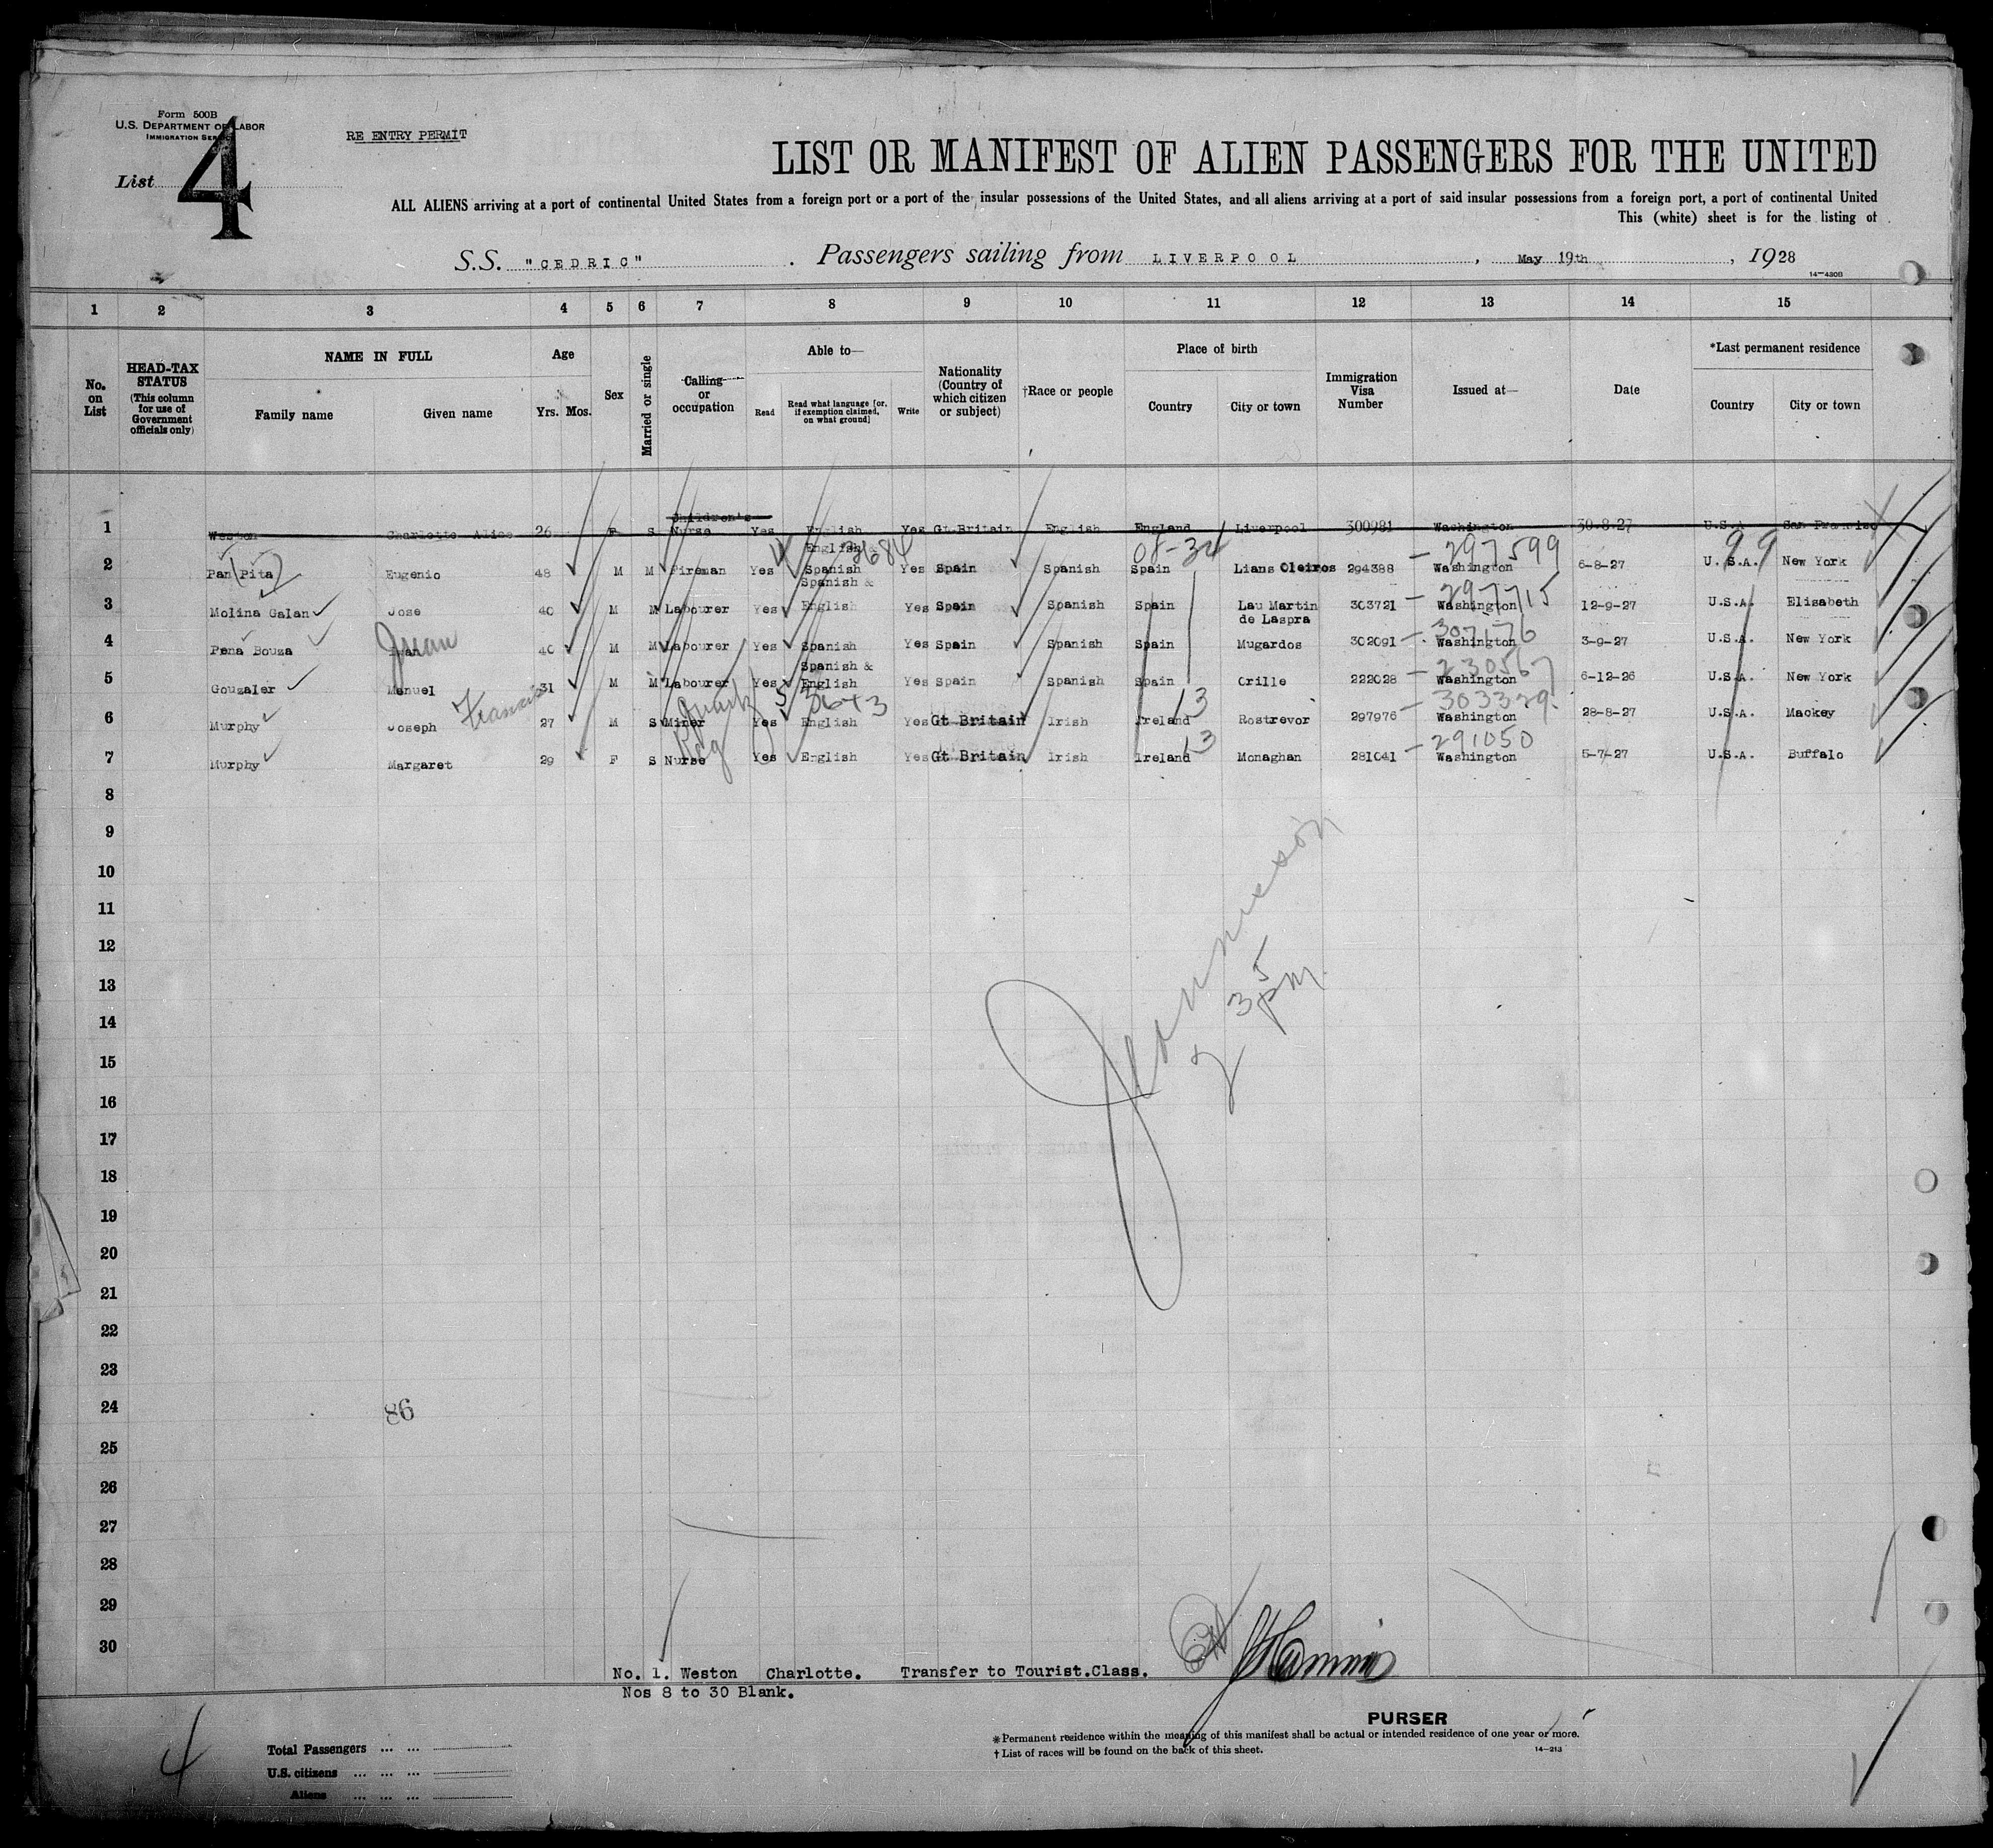 Form 500B
U.S. DEPARTMENT OF LABOR
IMMIGRATION SERVICE
RE ENTRY PERMIT
List 4
LIST OR MANIFEST OF ALIEN PASSENGERS FOR THE UNITED
ALL ALIENS arriving at a port of continental United States from a foreign port or a port of the insular possessions of the United States, and all aliens arriving at a port of said insular possessions from a foreign port, a port of continental United
This (white) sheet is for the listing of
S.S. "CEDRIC" . Passengers sailing from LIVERPOOL , May 19th , 1928
14-430B
1 2 3 4 5 6 7 8 9 10 11 12 13 14 15
No. on List
HEAD-TAX STATUS (This column for use of Government officials only)
NAME IN FULL
Family name Given name
Age
Yrs. Mos.
Sex
Married or single
Calling or occupation
Able to—
Read Read what language [or, if exemption claimed, on what ground] Write
Nationality (Country of which citizen or subject)
†Race or people
Place of birth
Country City or town
Immigration Visa Number
Issued at—
Date
*Last permanent residence
Country City or town
Children's
1 Weston Charlotte Alice 26 F S Nurse Yes English Yes Gt.Britain English England Liverpool 300981 Washington 30-8-27 U.S.A San Francisco
English & 3684 08-34 -297599 99
2 Pan Pita Eugenio 48 M M Fireman Yes Spanish Yes Spain Spanish Spain Lians Oleiros 294388 Washington 6-8-27 U.S.A. New York
Spanish & -297715
3 Molina Galan Jose 40 M M Labourer Yes English Yes Spain Spanish Spain Lau Martin 303721 Washington 12-9-27 U.S.A. Elisabeth
de Laspra
Juan -307176
4 Pena Bouza Ivan 40 M M Labourer Yes Spanish Yes Spain Spanish Spain Mugardos 302091 Washington 3-9-27 U.S.A. New York
Spanish & -230567
5 Gouzaler Manuel 31 M M Labourer Yes English Yes Spain Spanish Spain Orille 222028 Washington 6-12-26 U.S.A. New York
Francis 13 -303329
6 Murphy Joseph 27 M S Miner Yes English Yes Gt Britain Irish Ireland Rostrevor 297976 Washington 28-8-27 U.S.A. Mackey
Reg 13 -291050
7 Murphy Margaret 29 F S Nurse Yes English Yes Gt Britain Irish Ireland Monaghan 281041 Washington 5-7-27 U.S.A. Buffalo
8
9
10
11
12
13
14
15
16
17
18
19
20
21
22
23
24
86
25
26
27
28
29
30
No. 1. Weston Charlotte. Transfer to Tourist.Class.
Nos 8 to 30 Blank.
PURSER
*Permanent residence within the meaning of this manifest shall be actual or intended residence of one year or more.
†List of races will be found on the back of this sheet.
14-213
4
Total Passengers ... ...
U.S. citizens ... ... ...
Aliens ... ... ...